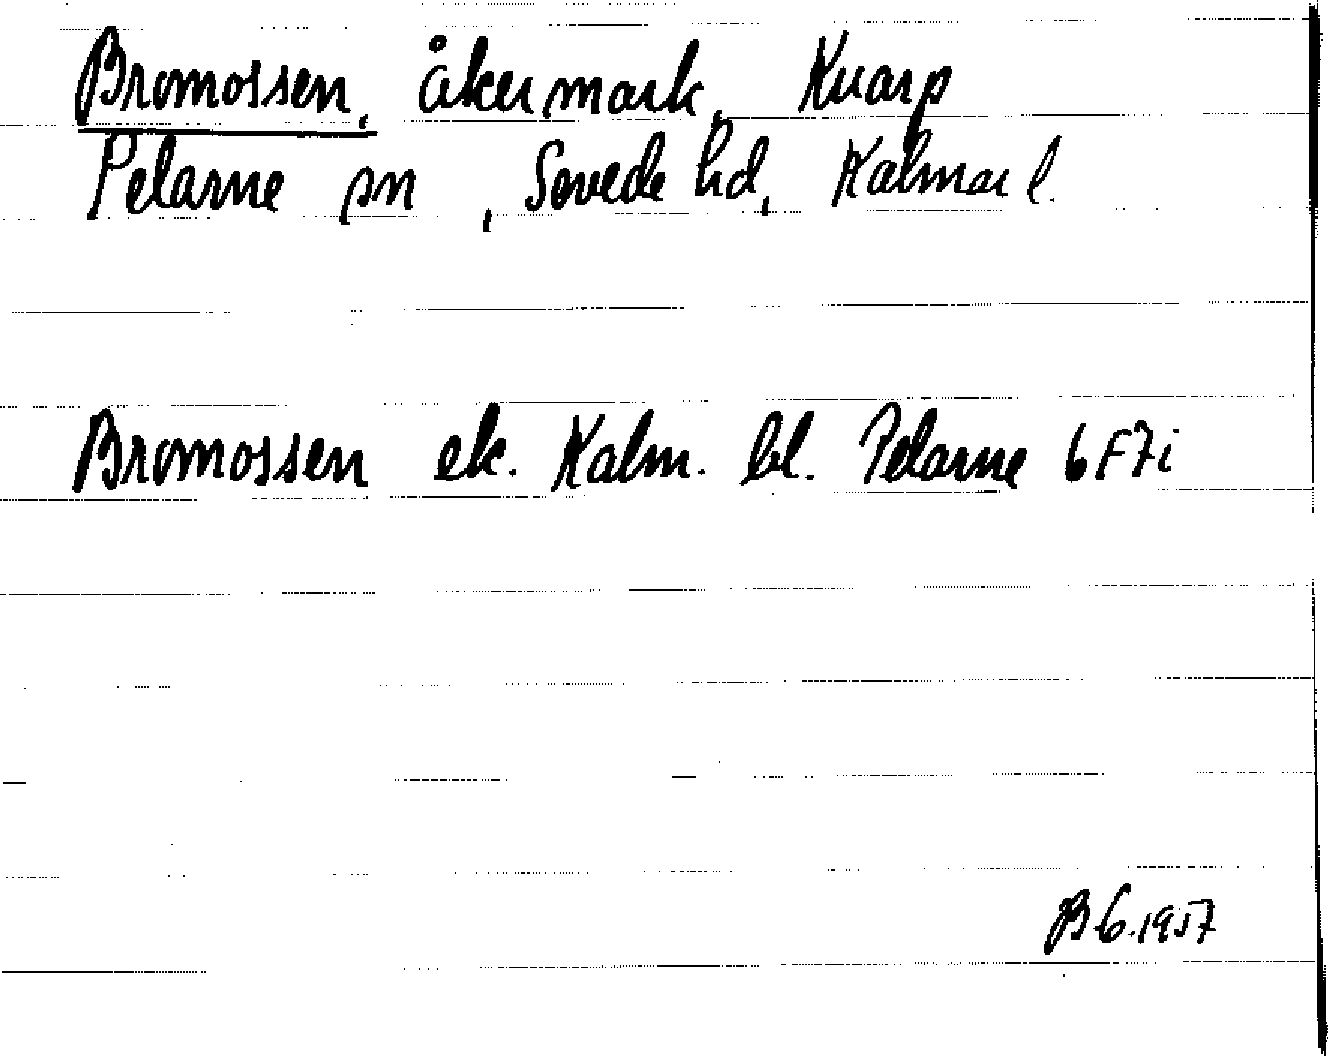 Bromossen, åkermark, Knarp
Pelarne sn, Sevede hd, Kalmar l.
Bromossen ek. Kalm. bl. Pelarne 6F7i
BG.1957